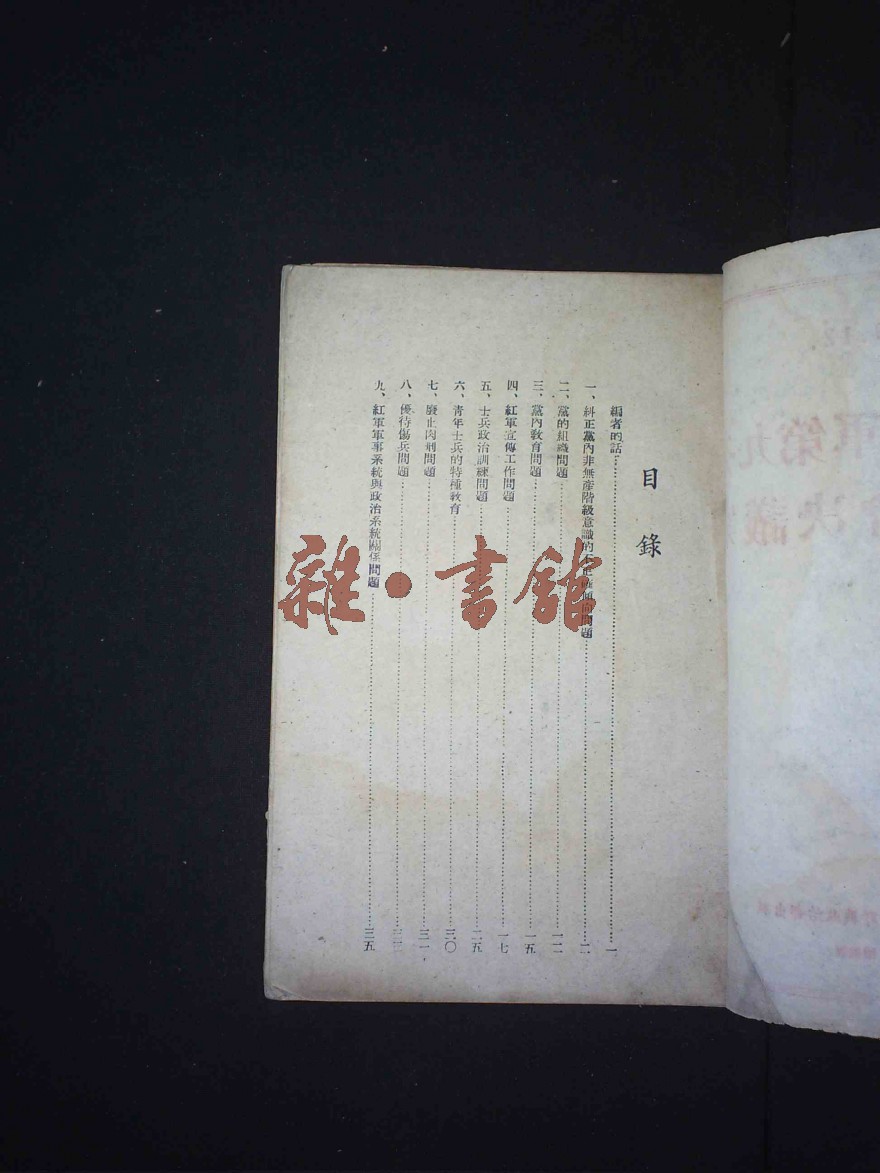 目錄
編者的話……一
一、糾正黨內非無產階級意識的不正確傾向問題……二
二、黨的組織問題……一二
三、黨內教育問題……一五
四、紅軍宣傳工作問題……一七
五、士兵政治訓練問題……二五
六、青年士兵的特種教育……三〇
七、廢止肉刑問題……三一
八、優待傷兵問題……
九、紅軍軍事系統與政治系統關係問題……三五
雜·書館